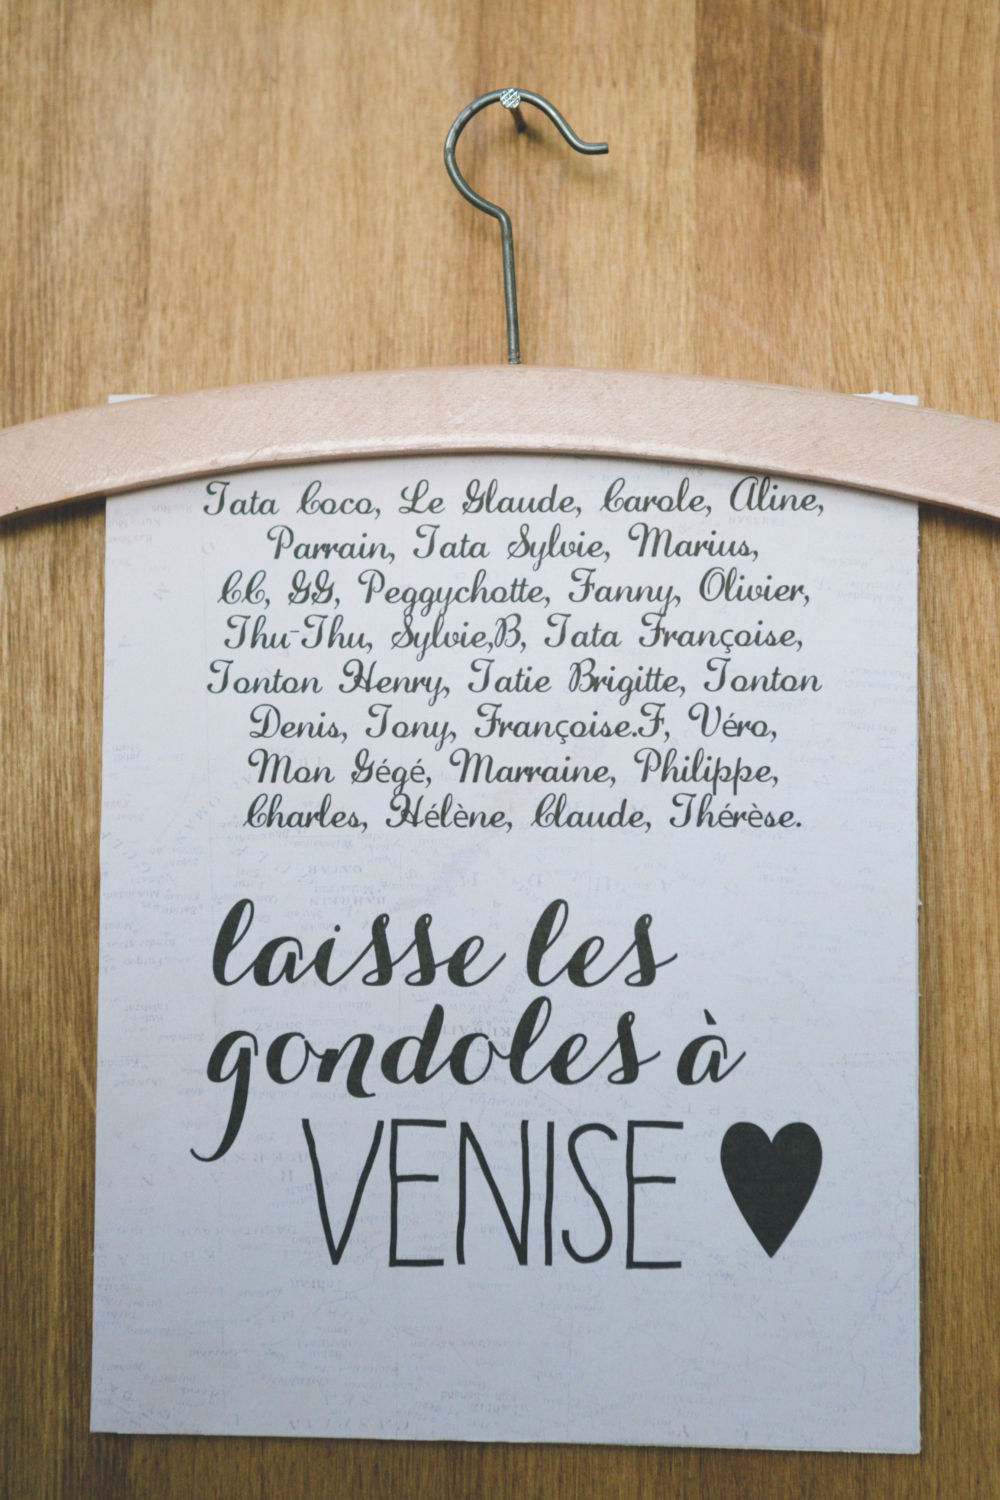 Tata Coco, Le Glaude, Carole, Aline,
Parrain, Tata Sylvie, Marius,
CC, GG, Peggychotte, Fanny, Olivier,
Thu-Thu, Sylvie,B, Tata Françoise,
Tonton Henry, Tatie Brigitte, Tonton
Denis, Tony, Françoise.F, Véro,
Mon Gégé, Marraine, Philippe,
Charles, Hélène, Claude, Thérèse.
laisse les
gondoles à
VENISE